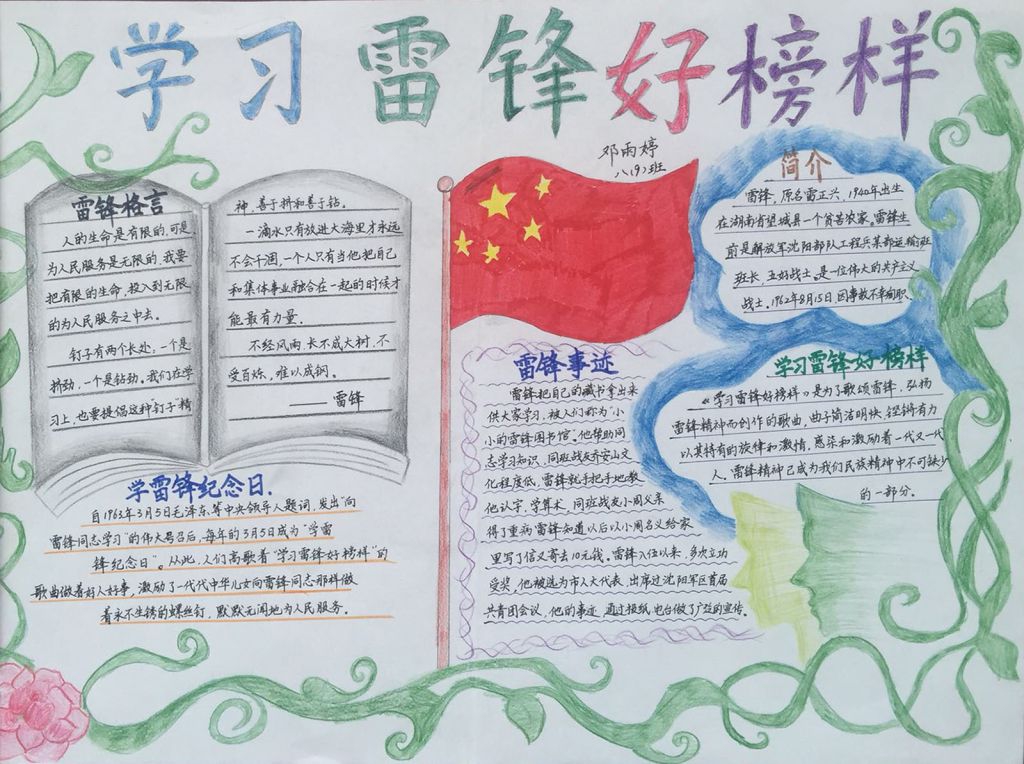 学习雷锋好榜样
邓雨婷
八(9)班
雷锋格言
人的生命是有限的,可是
为人民服务是无限的,我要
把有限的生命,投入到无限
的为人民服务之中去。
钉子有两个长处,一个是
挤劲,一个是钻劲。我们在学
习上,也要提倡这种"钉子"精
神,善于挤和善于钻。
一滴水只有放进大海里才永远
不会干涸,一个人只有当他把自己
和集体事业融合在一起的时候才
能最有力量。
不经风雨,长不成大树,不
受百炼,难以成钢。
——雷锋
学雷锋纪念日.
自1963年3月5日毛泽东等中央领导人题词,发出"向
雷锋同志学习"的伟大号召后,每年的3月5日成为"学雷
锋纪念日"。从此,人们高歌着"学习雷锋好榜样"的
歌曲做着好人好事,激励了一代代中华儿女向雷锋同志那样做
着永不生锈的螺丝钉,默默无闻地为人民服务。
雷锋事迹
雷锋把自己的藏书拿出来
供大家学习,被人们称为"小
小的雷锋图书馆"。他帮助同
志学习知识,同班战友乔安山文
化程度低,雷锋就手把手地教
他认字,学算术,同班战友小周父亲
得了重病雷锋知道以后以小周名义给家
里写了信又寄去10元钱。雷锋入伍以来,多次立功
受奖,他被选为市人大代表,出席过沈阳军区首届
共青团会议,他的事迹,通过报纸,电台做了广泛的宣传。
简介
雷锋,原名雷正兴,1940年出生
在湖南省望城县一个贫苦农家。雷锋生
前是解放军沈阳部队工程兵某部运输班
班长,五好战士。是一位伟大的共产主义
战士。1962年8月15日,因事故不幸殉职
学习雷锋好榜样
《学习雷锋好榜样》是为了歌颂雷锋,弘扬
雷锋精神而创作的歌曲,曲子简洁明快,铿锵有力
以其特有的旋律和激情,感染和激励着一代又一代
人,雷锋精神已成为我们民族精神中不可缺少
的一部分。